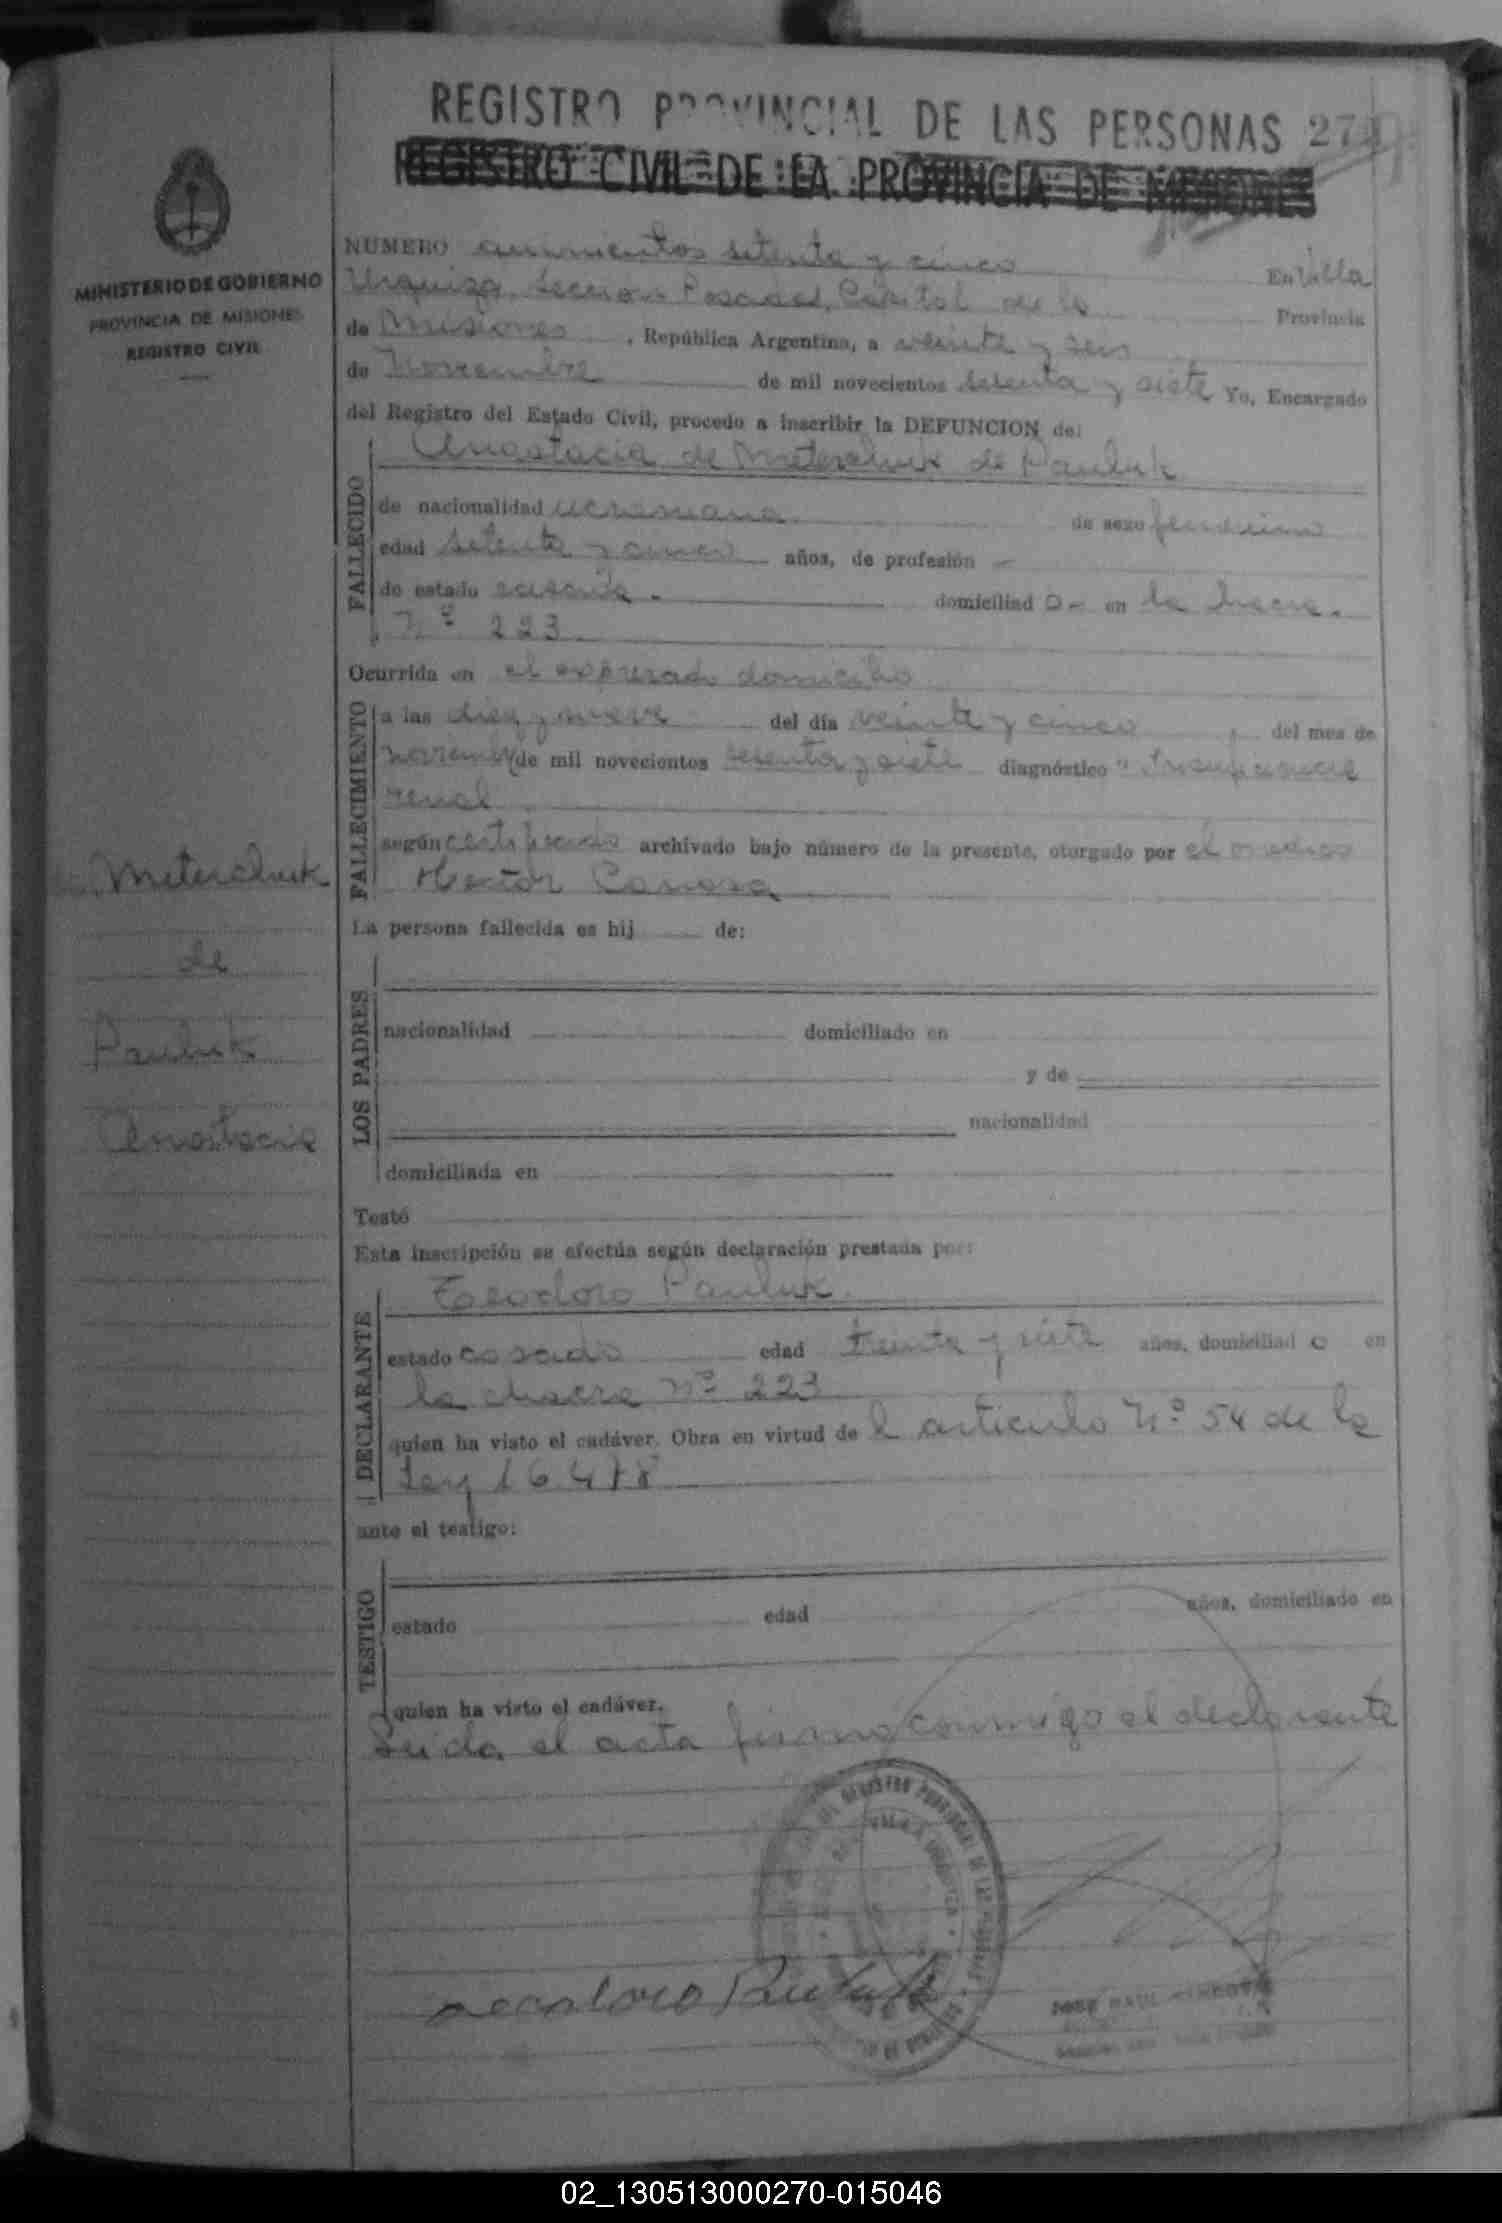 REGISTRO PROVINCIAL DE LAS PERSONAS 27
REGISTRO CIVIL DE LA PROVINCIA DE MISIONES
MINISTERIO DE GOBIERNO
PROVINCIA DE MISIONES
REGISTRO CIVIL
NUMERO quinientos setenta y cinco En Villa
Urquiza, Sección Posadas, Capital de la Provincia
de Misiones, República Argentina, a veinte y seis
de Noviembre de mil novecientos sesenta y siete Yo, Encargado
del Registro del Estado Civil, procedo a inscribir la DEFUNCION de:
FALLECIDO
Anastacia de Meterchuk de Pauluk
de nacionalidad ucraniana de sexo femenino
edad setenta y cinco años, de profesión —
de estado casada.- domiciliad a - en la chacra.
Nº 223
Ocurrida en el expresado domicilio
FALLECIMIENTO
a las diez y nueve del día veinte y cinco del mes de
noviembre de mil novecientos sesenta y siete diagnóstico "Insuficiencia
renal
según certificado archivado bajo número de la presente, otorgado por el medico
Hector Canosa
La persona fallecida es hij de:
LOS PADRES
nacionalidad domiciliado en
y de
nacionalidad
domiciliada en
Testó
Esta inscripción se efectúa según declaración prestada por:
DECLARANTE
Teodoro Pauluk.
estado casado edad treinta y siete años, domiciliad o en
la chacra Nº 223
quien ha visto el cadáver. Obra en virtud de l articulo Nº 54 de la
Ley 16.478
ante el testigo:
TESTIGO
estado edad años, domiciliado en
quien ha visto el cadáver.
Leida el acta firma conmigo el declarante
Meterchuk
de
Pauluk
Anastacia
REGISTRO PROVINCIAL DE LAS PERSONAS
JOSE RAUL
02_130513000270-015046